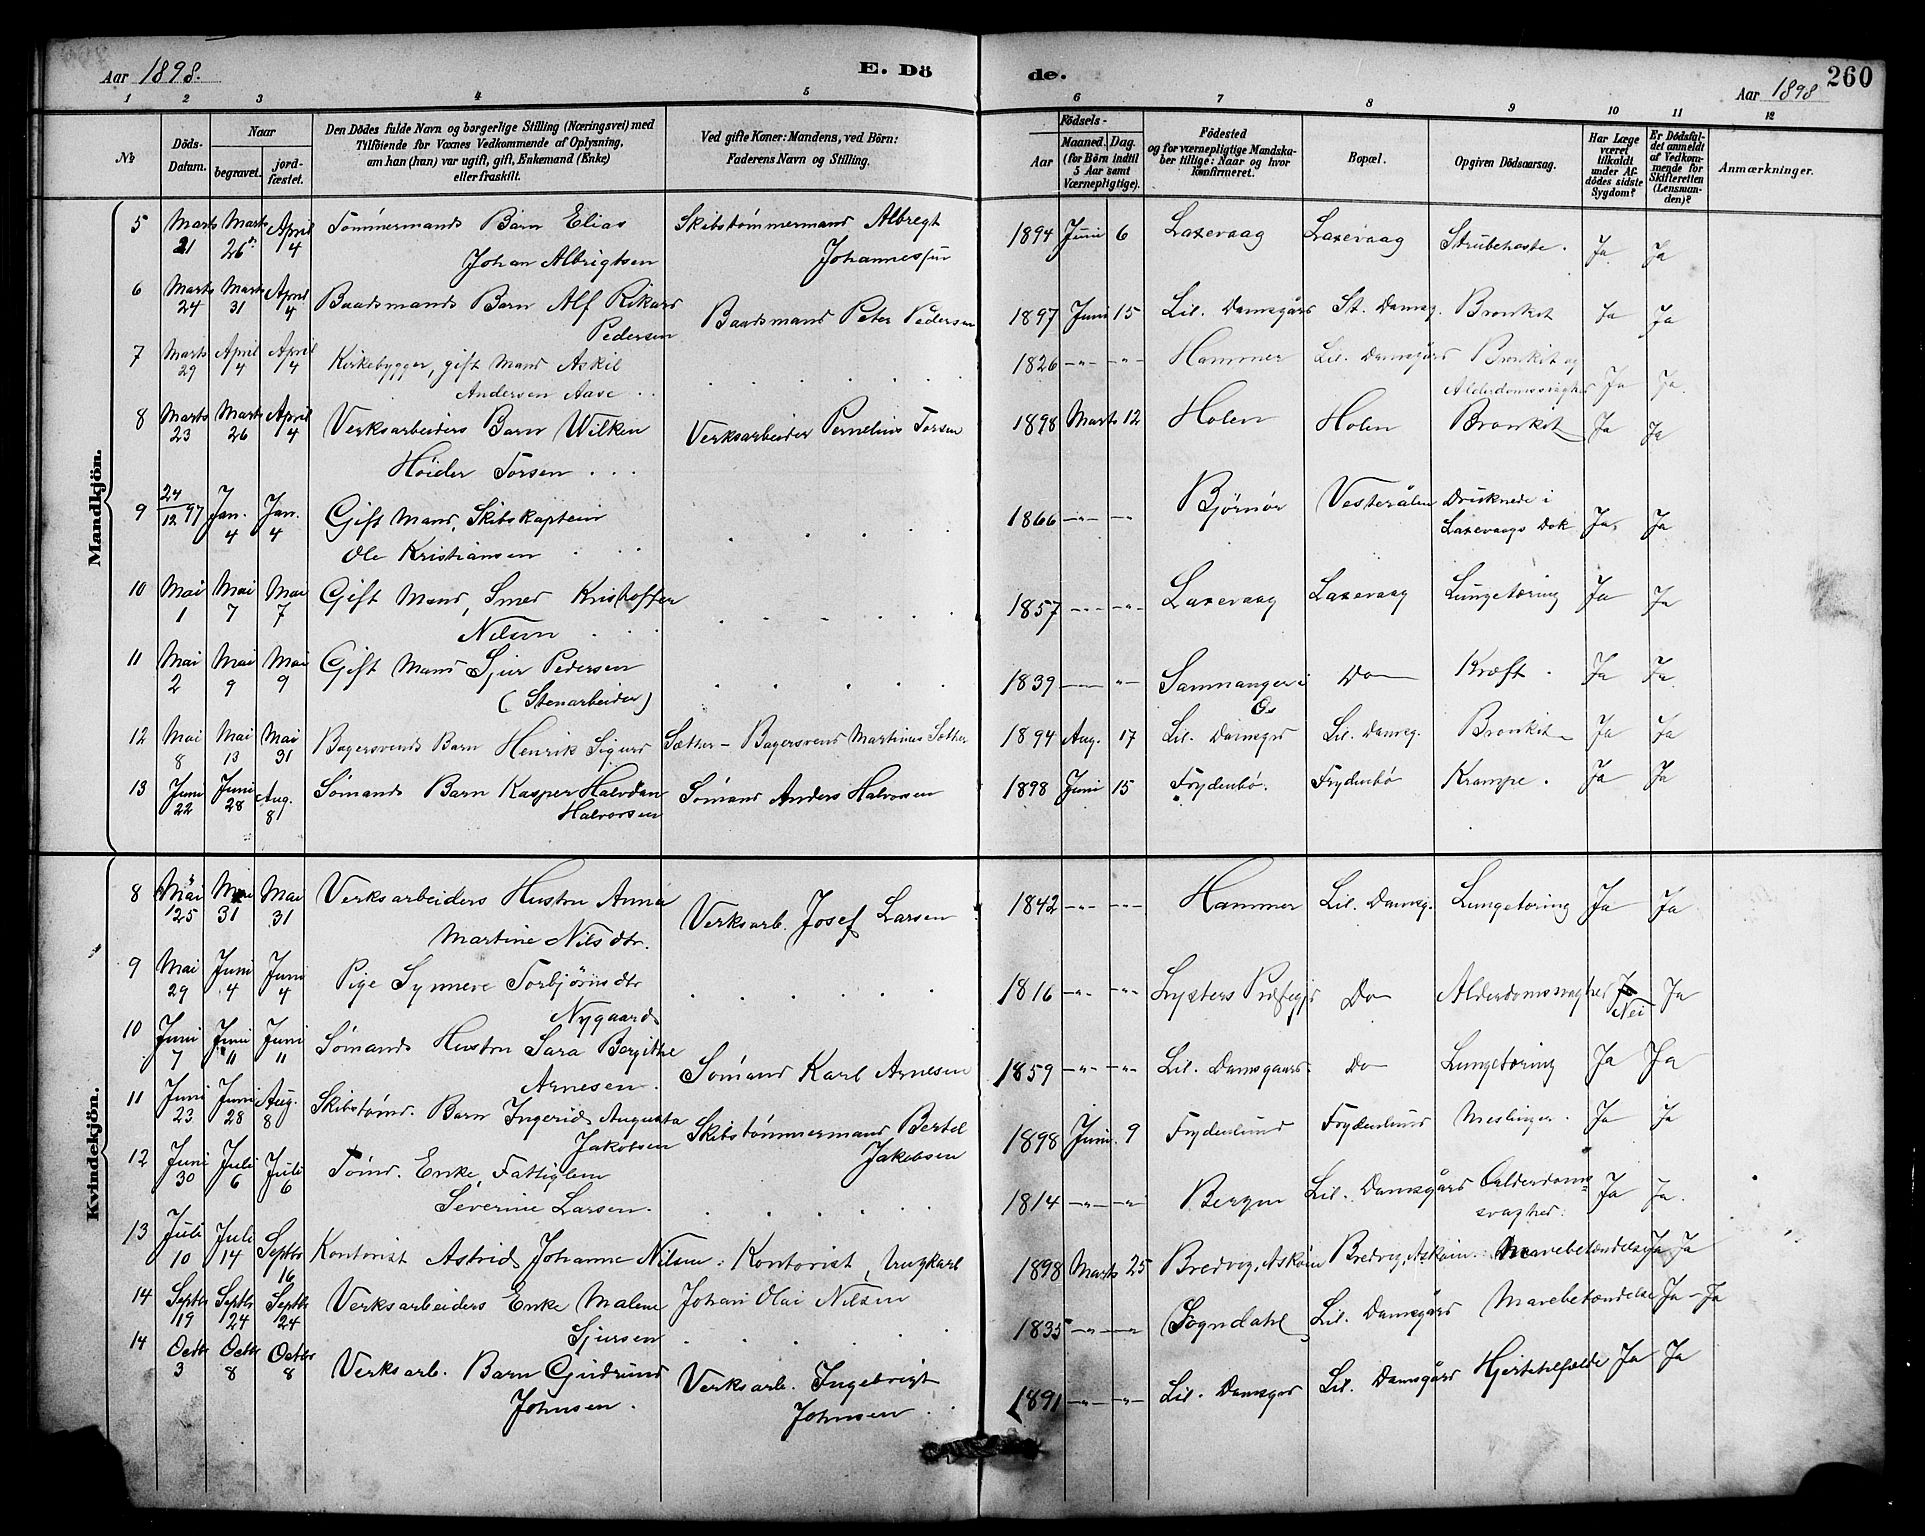 Aar 1898. E. Dö de. Aar 1898 260
1 2 3 4 5 6 7 8 9 10 11 12
№ Döds-Datum. Naar begravet. jord-fæstet. Den Dödes fulde Navn og borgerlige Stilling (Næringsvei) med Tilföiende for Voxnes Vedkommende af Oplysning, om han (hun) var ugift, gift, Enkemand (Enke) eller fraskilt. Ved gifte Koner: Mandens, ved Börn: Faderens Navn og Stilling. Födsels- Aar Maaned. Dag. (for Börn indtil 5 Aar samt Værnepligtige). Födested og for værnepligtige Mandska-ber tillige: Naar og hvor Konfirmeret. Bopæl. Opgiven Dödsaarsag. Har Læge været tilkaldt under Af-dödes sidste Sygdom? Er Dödsfal-det anmeldt af Vedkom-mende for Skifteretten (Lensman-den)? Anmærkninger.
Mandkjön.
5 Marts 21 Marts 26 April 4 Tømmermands Barn Elias Skibstømmermand Albregt 1894 Juni 6 Laxevaag Laxevaag Strubehoste. Ja Ja
Johan Albrigtsen Johannessen
6 Marts 24 Marts 31 April 4 Baadsmands Barn Alf Rikard Baadsmand Peter Pedersen 1897 Juni 15 Lil. Damsgård St. Damsg. Bronkit Ja Ja
Pedersen
7 Marts 29 April 4 April 4 Kirkebygger, gift Mand Askil 1826 -"- -"- Hammer Lil. Damsgård Bronkit og
Andersen Aase . . Alderdomssvaghed Ja Ja.
8 Marts 23 Marts 26 April 4 Verksarbeiders Barn Wilken Verksarbeider Pernelius Torsen 1898 Marts 12 Holen Holen Bronkit Ja Ja
Höider Torsen . . .
9 24/12 97 Jan. 4 Jan. 4 Gift Mand, Skibskaptein 1866 -"- -"- Bjørnør Vesterålen Druknede i
Ole Kristiansen Laxevaags Dok Ja. Ja
10 Mai 1 Mai 7 Mai 7 Gift Mand, Smed Kristoffer 1857 -"- -"- Laxevaag Laxevaag Lungetæring Ja Ja
Nilsen . . .
11 Mai 2 Mai 9 Mai 9 Gift Mand Sjur Pedersen 1839 -"- -"- Samnanger i Do Kræft. Ja Ja
(Stenarbeider) Os
12 Mai 8 Mai 13 Mai 31 Bagersvends Barn Henrik Sigurd Sæther - Bagersvend Martinus Sæther 1894 Aug. 17 Lil. Damsgrd Lil. Damsg. Bronkit Ja Ja
13 Juni 22 Juni 28 Aug. 8 Sømands Barn Kasper Halvdan Sømand Anders Halvorsen 1898 Juni 15 Frydenbø. Frydenbø Krampe. Ja Ja
Halvorsen
Kvindekjön.
8 Mai 25 Mai 31 Mai 31 Verksarbeiders Hustru Anna Verksarb. Josef Larsen 1842 -"- -"- Hammer Lil. Damsg. Lungetæring Ja Ja
Martine Nilsdtr.
9 Mai 29 Juni 4 Juni 4 Pige Synneve Torbjørnsdtr 1816 -"- -"- Lysters Do Alderdomssvaghed Nei Ja
Nygaard
10 Juni 7 Juni 11 Juni 11 Sømands Hustru Sara Bergitte Sømand Karl Arnesen 1859 -"- -"- Lil. Damsgaard Do Lungetæring Ja Ja
Arnesen.
11 Juni 23 Juni 28 Aug. 8 Skibstømd. Barn Ingerid Augusta Skibstømmermand Bertel 1898 Juni 9 Frydenlund Frydenlund Meslinger. Ja Ja
Jakobsen Jakobsen
12 Juni 30 Juli 6 Juli 6 Tømd. Enke, Fattiglem 1814 -"- -"- Bergen Lil. Damsgård Alderdoms-
Severine Larsen. svaghed. Ja Ja.
13 Juli 10 Juli 14 Septbr 16 Kontorist Astrid Johanne Nilsen: Kontorist, Ungkarl 1898 Marts 25 Bredvig, Askøin Bredvig, Askøin. Mavebetændelse Ja Ja
14 Septbr 19 Septbr 24 Septbr 24 Verksarbeiders Enke Malene Johan Olai Nilsen 1835 -"- -"- Sogndahl Lil. Damsgård Mavebetændelse Ja - Ja
Sjursen
14 Octbr 3 Octbr 8 Octbr 8 Verksarb. Barn Gudrund Verksarb. Ingebrigt 1891 -"- -"- Lil. Damsgrd Lil. Damsgård Hjertetilfælde Ja Ja
Johnsen. Johnsen